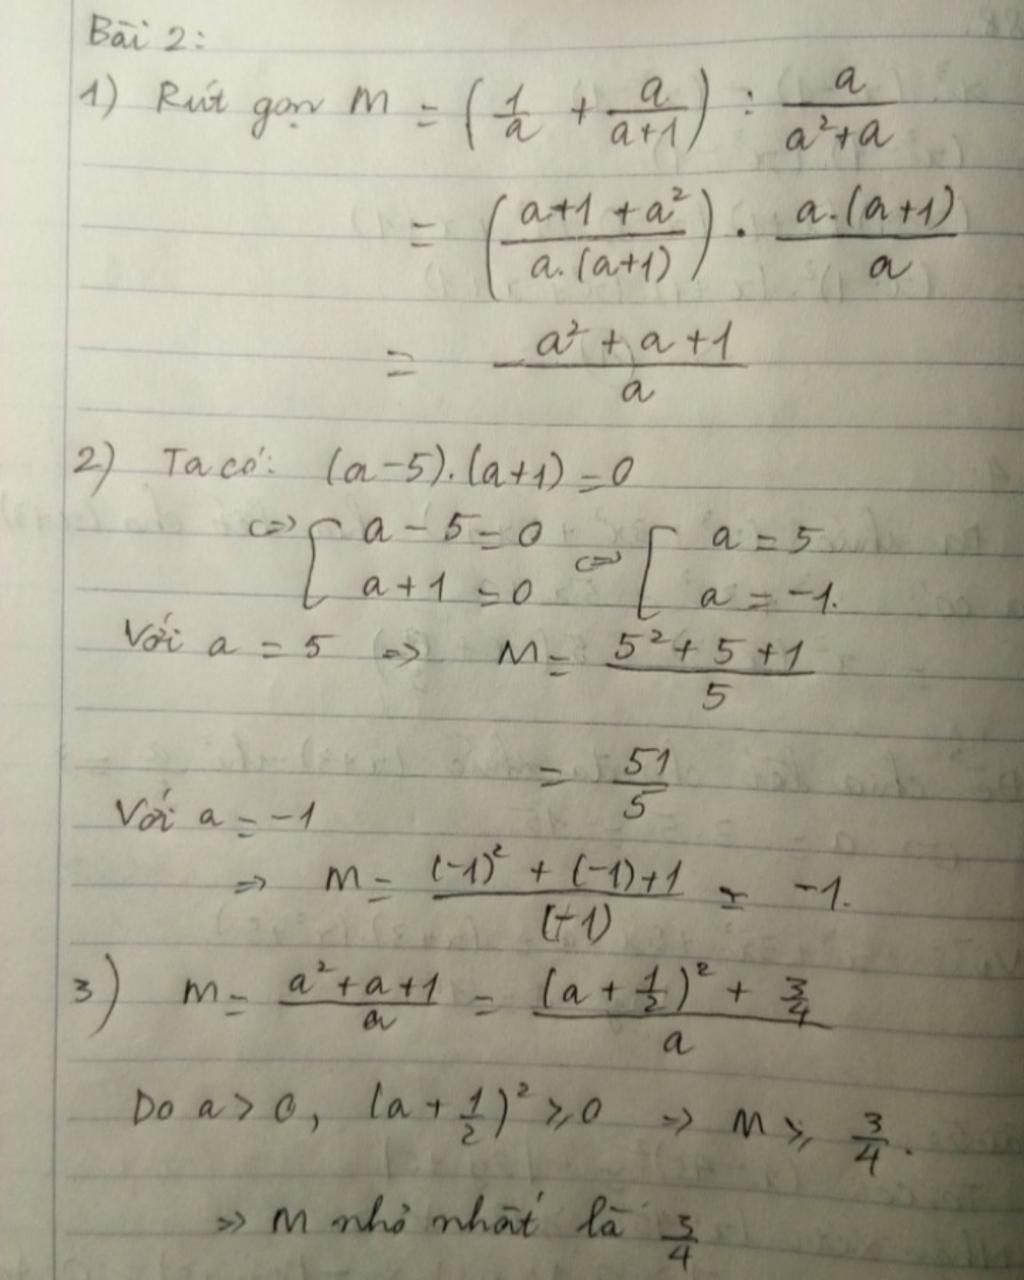 Bài 2:
1) Rút gọn M = (1/a + a/(a+1)) : a/(a²+a)
= ((a+1+a²)/(a.(a+1))) · (a.(a+1))/a
= (a²+a+1)/a
2) Ta có: (a-5).(a+1)=0
<=> [ a-5=0 <=> [ a=5
a+1=0 a=-1.
Với a=5 => M= (5²+5+1)/5
= 51/5
Với a=-1
=> M= ((-1)²+(-1)+1)/(-1) = -1.
3) M= (a²+a+1)/a = ((a+1/2)²+3/4)/a
Do a>0, (a+1/2)² ⩾0 => M ⩾ 3/4.
=> M nhỏ nhất là 3/4